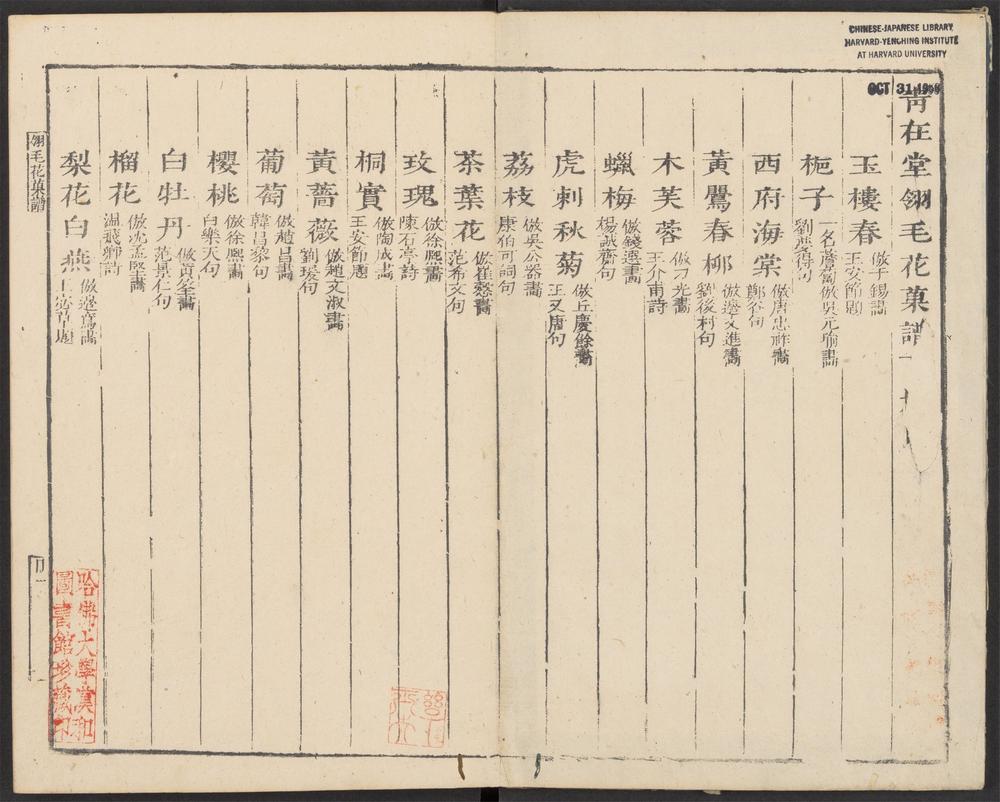 CHINESE-JAPANESE LIBRARY
HARVARD-YENCHING INSTITUTE
AT HARVARD UNIVERSITY
OCT 31 1950
青在堂翎毛花菓譜
玉樓春 倣于錫畵
王安節題
梔子 一名薝蔔倣吳元瑜畵
西府海棠 倣唐忠祚畵
鄭谷句
黃鸎春柳 倣邊文進畵
劉後村句
木芙蓉 倣刁光畵
王介甫詩
蠟梅 倣錢選畵
楊誠齋句
虎刺秋菊 倣丘慶餘畵
王又唐句
荔枝 倣吳公器畵
康伯可詞句
茶葉花 倣崔慤畵
范希文句
玫瑰 倣徐熈畵
陳石亭詩
桐實 倣陶成畵
王安節題
黃薔薇 倣趙文淑畵
劉瑗句
葡萄 倣趙昌畵
韓昌黎句
櫻桃 倣徐熈畵
白樂天句
白牡丹 倣黃筌畵
范景仁句
榴花 倣沈孟堅畵
温飛卿詩
梨花白燕 倣邊鸞畵
王宓草題
翎毛花菓譜
哈佛大學漢和
圖書館珍藏印